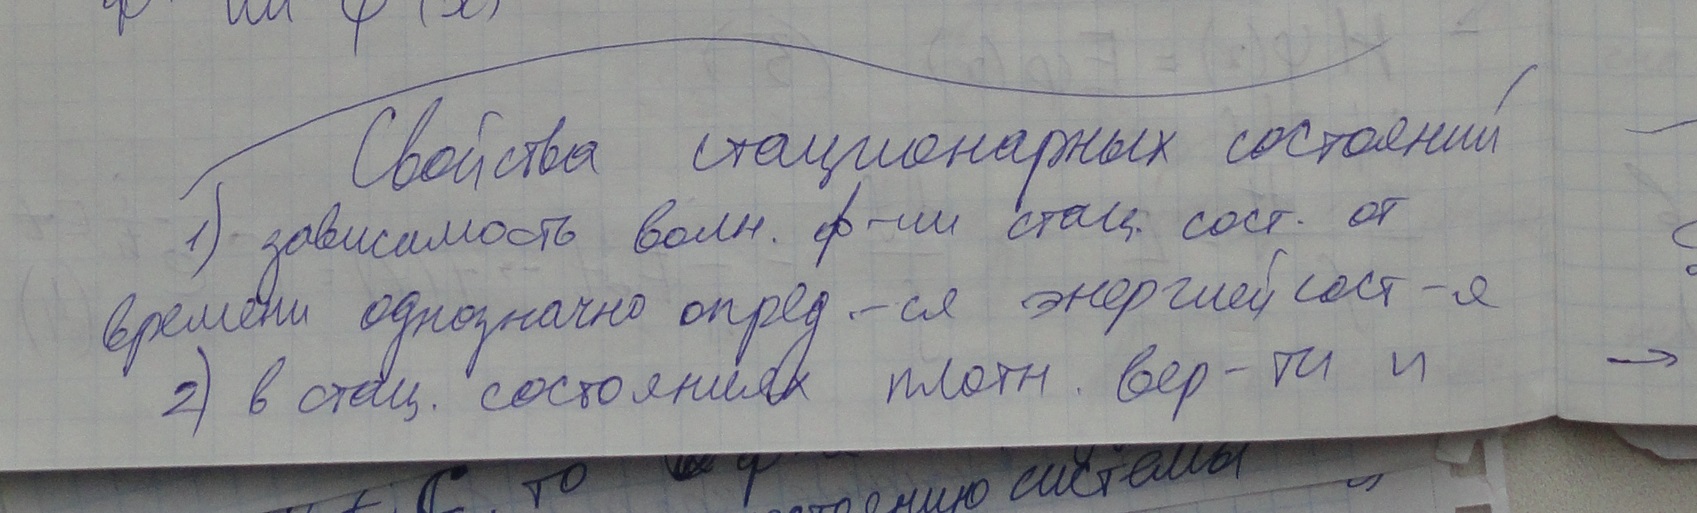 Свойства стационарных состояний
1) зависимость волн. ф-ии стац. сост. от
времени однозначно опред.-ся энергией сост-я
2) в стац. состояниях плотн. вер-ти и →
то
системы